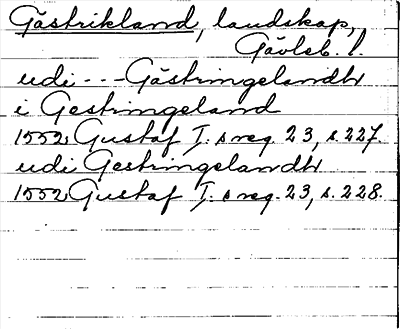 Gästrikland, landskap,
Gävleb. l.
udi --- Gästringelandh
i Gestringeland
1552 Gustaf I:s reg. 23, s. 227.
udi Gestringelandh
1552 Gustaf I:s reg. 23, s. 228.